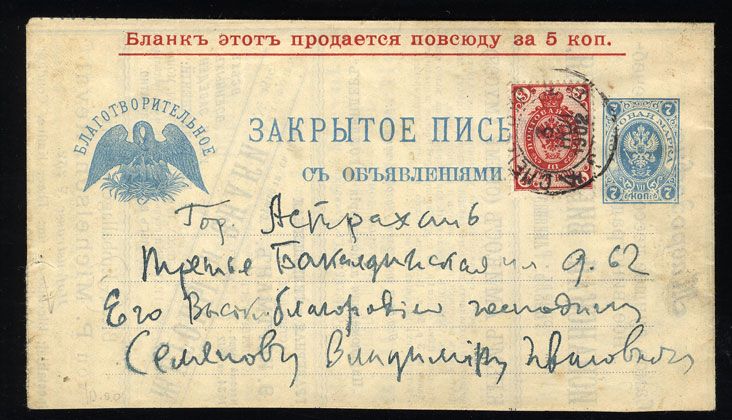 Бланкъ этотъ продается повсюду за 5 коп.
БЛАГОТВОРИТЕЛЬНОЕ
ЗАКРЫТОЕ ПИСЬ
съ ОБЪЯВЛЕНІЯМИ
7 7
МАРКА
7 КОП. 7
1902
Гор. Астрахань
Третье Бакалдинская ул. д. 62
Его Высокоблагородію господину
Семенову Владиміру Ивановичу